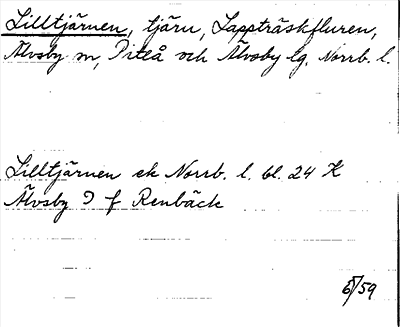 Lilltjärnen, tjärn, Lappträskfluren,
Älvsby sn, Piteå och Älvsby lg. Norrb. l.
Lilltjärnen ek Norrb. l. bl. 24 K
Älvsby 9 f Renbäck
6/59